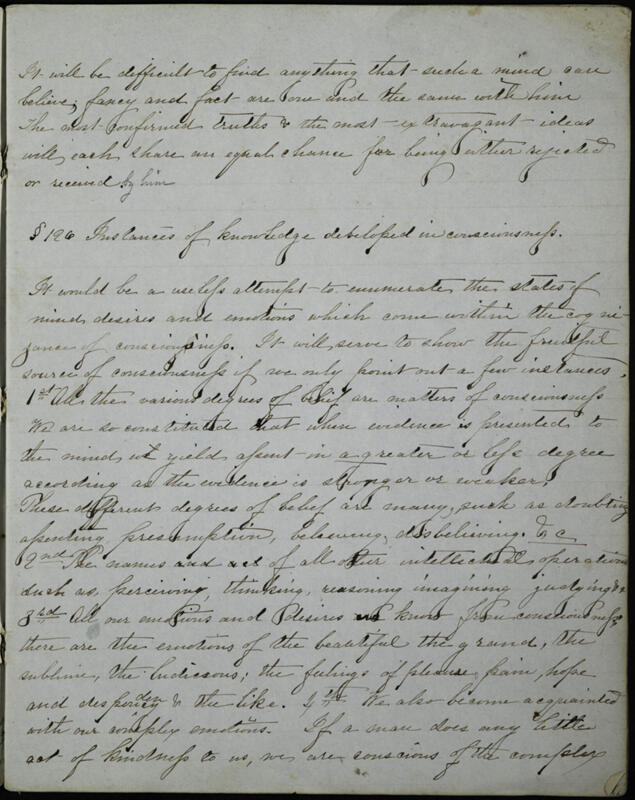 It will be difficult to find anything that such a mind can
believe, fancy and fact are one and the same with him
The most confirmed truths & the most extravagant ideas
will each share an equal chance for being either rejected
or received by him
§ 196 Instances of knowledge developed in consciousness.
It would be a useless attempt to enumerate the states of
mind desires and emotions which come within the cogni-
zance of consciousness. It will serve to show the fruitful
source of consciousness if we only point out a few instances,
1st All the various degrees of belief are matters of consciousness
We are so constituted that when evidence is presented to
the mind we yield assent in a greater or less degree
according as the evidence is stronger or weaker,
These different degrees of belief are many, such as doubting
assenting, presumption, believing, disbelieving. &c
2nd The names and act of all our intellectual operations
such as, perceiving, thinking, reasoning imagining judging &c
3rd All our emotions and desires we know from consciousness,
there are the emotions of the beautiful the grand, the
sublime, the ludicrous; the feelings of pleasure, pain, hope
and despondency & the like. 4th We also become acquainted
with our complex emotions. If a man does any little
act of kindness to us, we are conscious of the complex